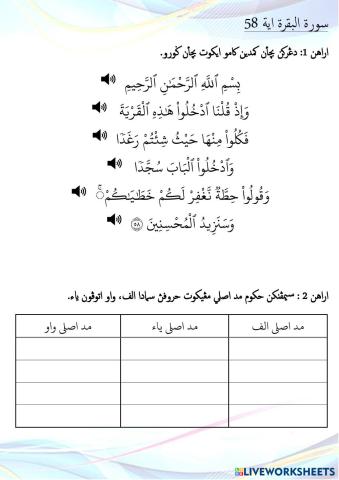 سورة البقرة اية 58
اراهن 1: دڠركن بچاءن كمدين كامو ايكوت بچاءن ݢورو.
بِسْمِ ٱللَّهِ ٱلرَّحْمَـٰنِ ٱلرَّحِيمِ
وَإِذْ قُلْنَا ٱدْخُلُوا۟ هَـٰذِهِ ٱلْقَرْيَةَ
فَكُلُوا۟ مِنْهَا حَيْثُ شِئْتُمْ رَغَدًا
وَٱدْخُلُوا۟ ٱلْبَابَ سُجَّدًا
وَقُولُوا۟ حِطَّةٌ نَّغْفِرْ لَكُمْ خَطَـٰيَـٰكُمْ ۚ
وَسَنَزِيدُ ٱلْمُحْسِنِينَ ٥٨
اراهن 2 : حكوم مد اصلي مڠيكوت حروفڽ سام ادا الف، واو اتوڤون ياء.
مد اصلي الف مد اصلي ياء مد اصلي واو
LIVEWORKSHEETS